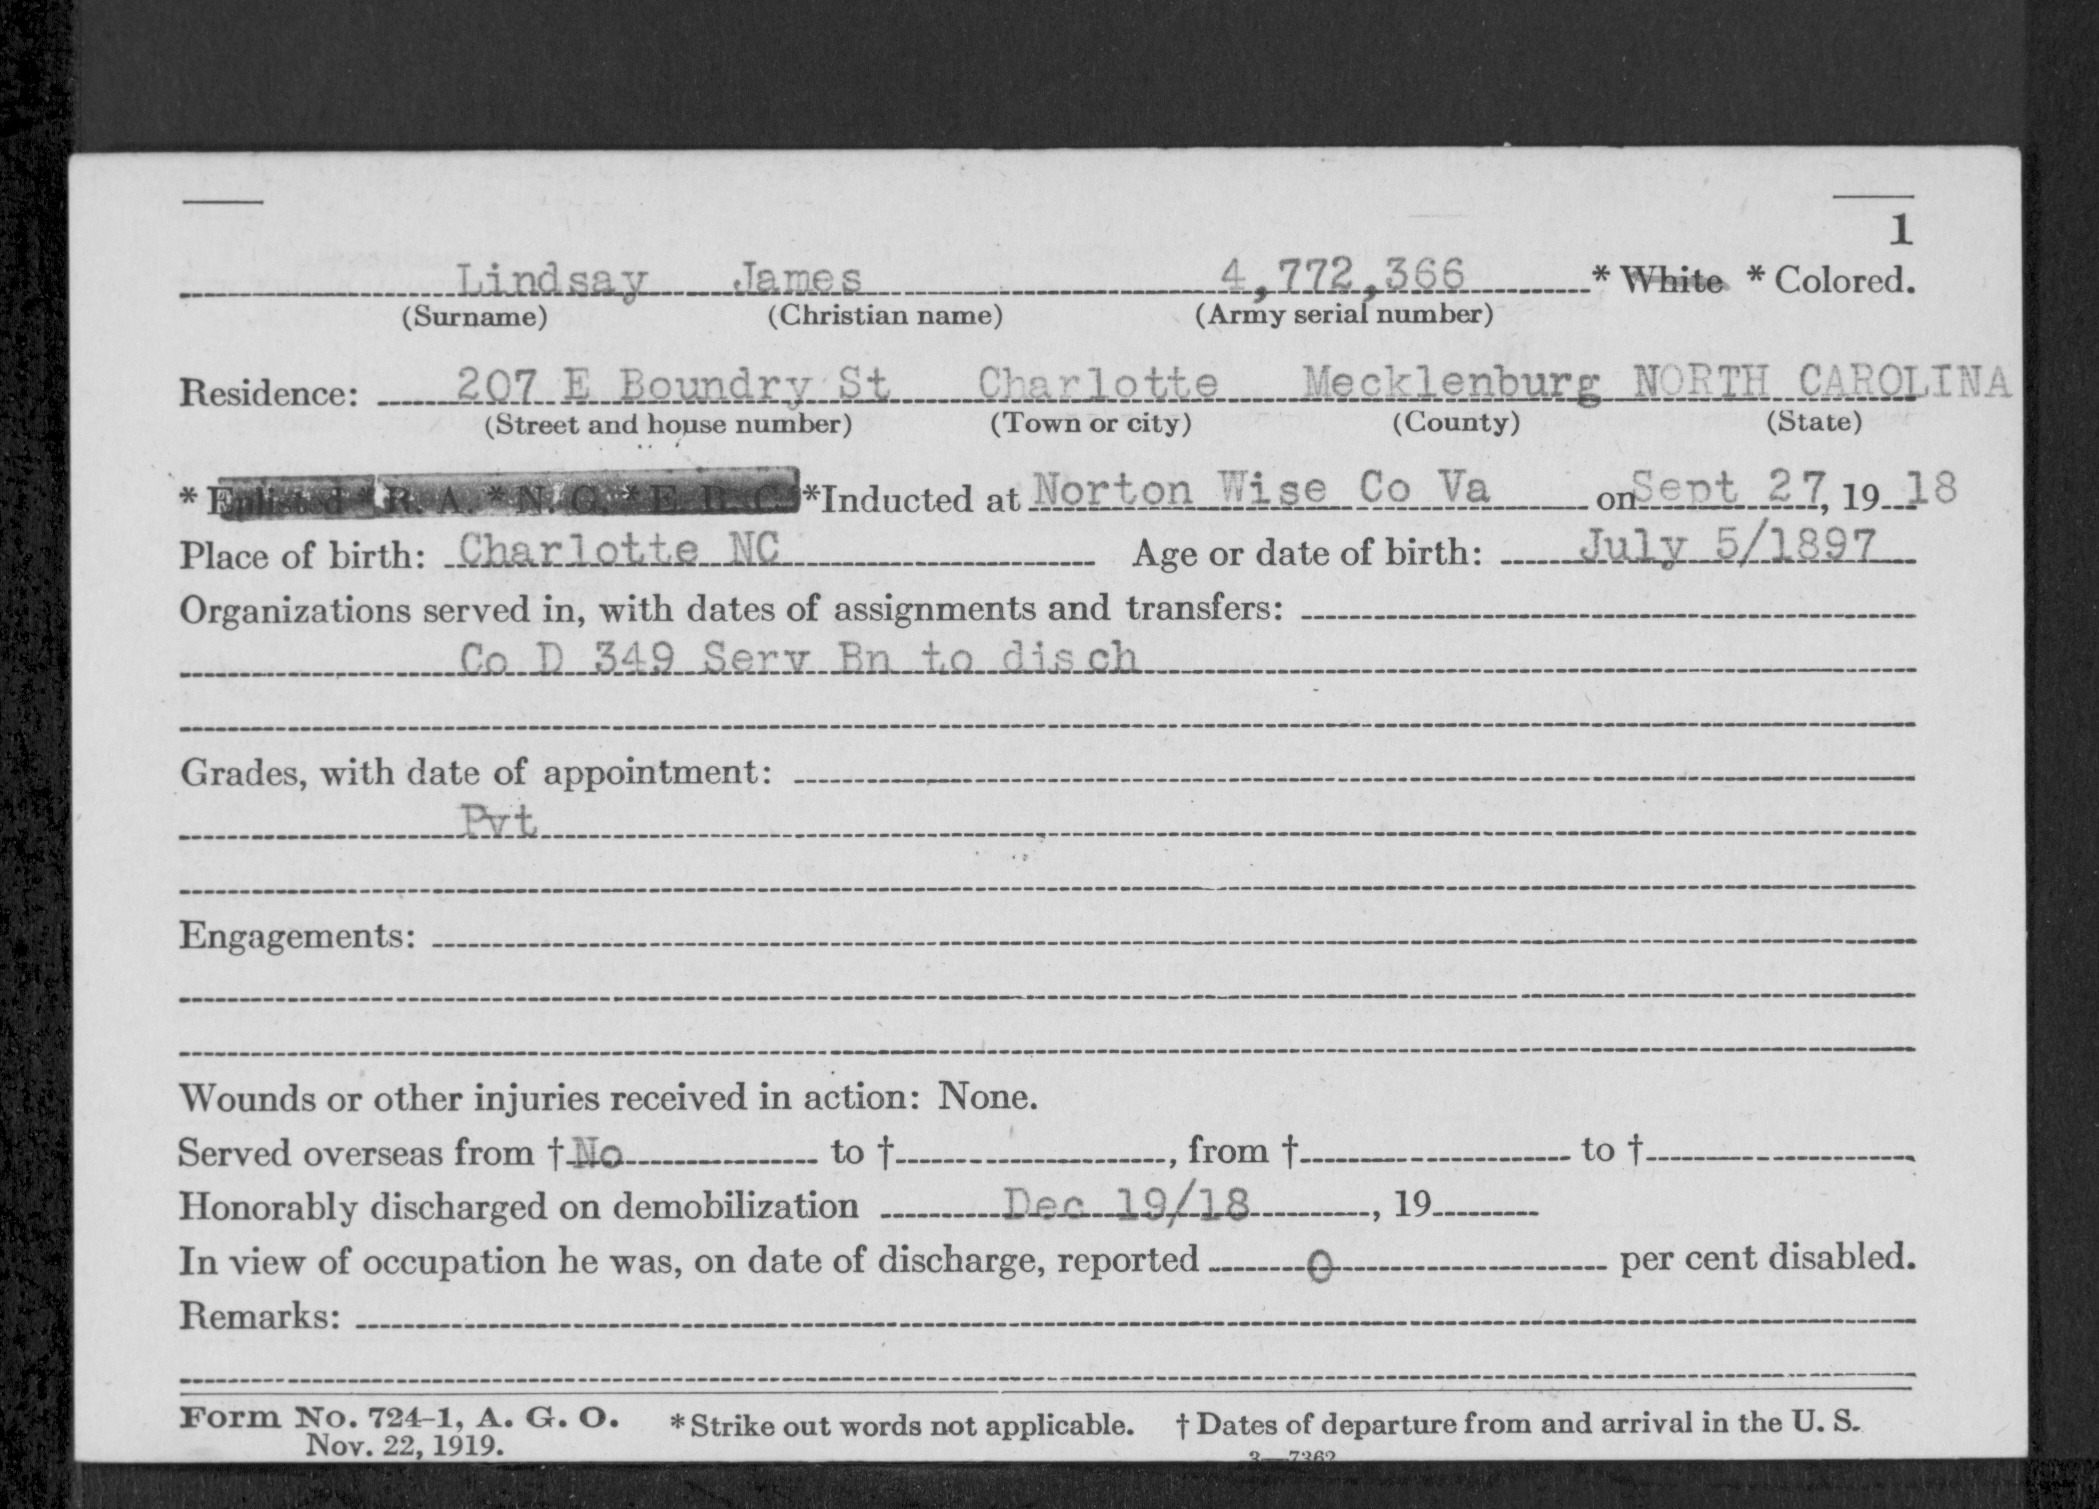 1
Lindsay James 4,772,366 * White * Colored.
(Surname) (Christian name) (Army serial number)
Residence: 207 E Boundry St Charlotte Mecklenburg NORTH CAROLINA
(Street and house number) (Town or city) (County) (State)
* Enlisted * R. A. * N. G. * E. R. C. *Inducted at Norton Wise Co Va on Sept 27, 19 18
Place of birth: Charlotte NC Age or date of birth: July 5/1897
Organizations served in, with dates of assignments and transfers:
Co D 349 Serv Bn to disch
Grades, with date of appointment:
Pvt
Engagements:
Wounds or other injuries received in action: None.
Served overseas from † No to †, from † to †
Honorably discharged on demobilization Dec 19/18, 19
In view of occupation he was, on date of discharge, reported 0 per cent disabled.
Remarks:
Form No. 724-1, A. G. O. * Strike out words not applicable. † Dates of departure from and arrival in the U. S.
Nov. 22, 1919. 3—7362